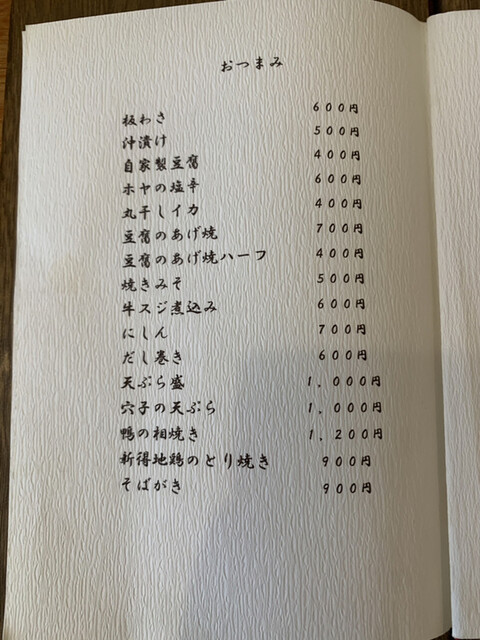 おつまみ
板わさ ６００円
沖漬け ５００円
自家製豆腐 ４００円
ホヤの塩辛 ６００円
丸干しイカ ４００円
豆腐のあげ焼 ７００円
豆腐のあげ焼ハーフ ４００円
焼きみそ ５００円
牛スジ煮込み ６００円
にしん ７００円
だし巻き ６００円
天ぷら盛 １，０００円
穴子の天ぷら １，０００円
鴨の相焼き １，２００円
新得地鶏のとり焼き ９００円
そばがき ９００円